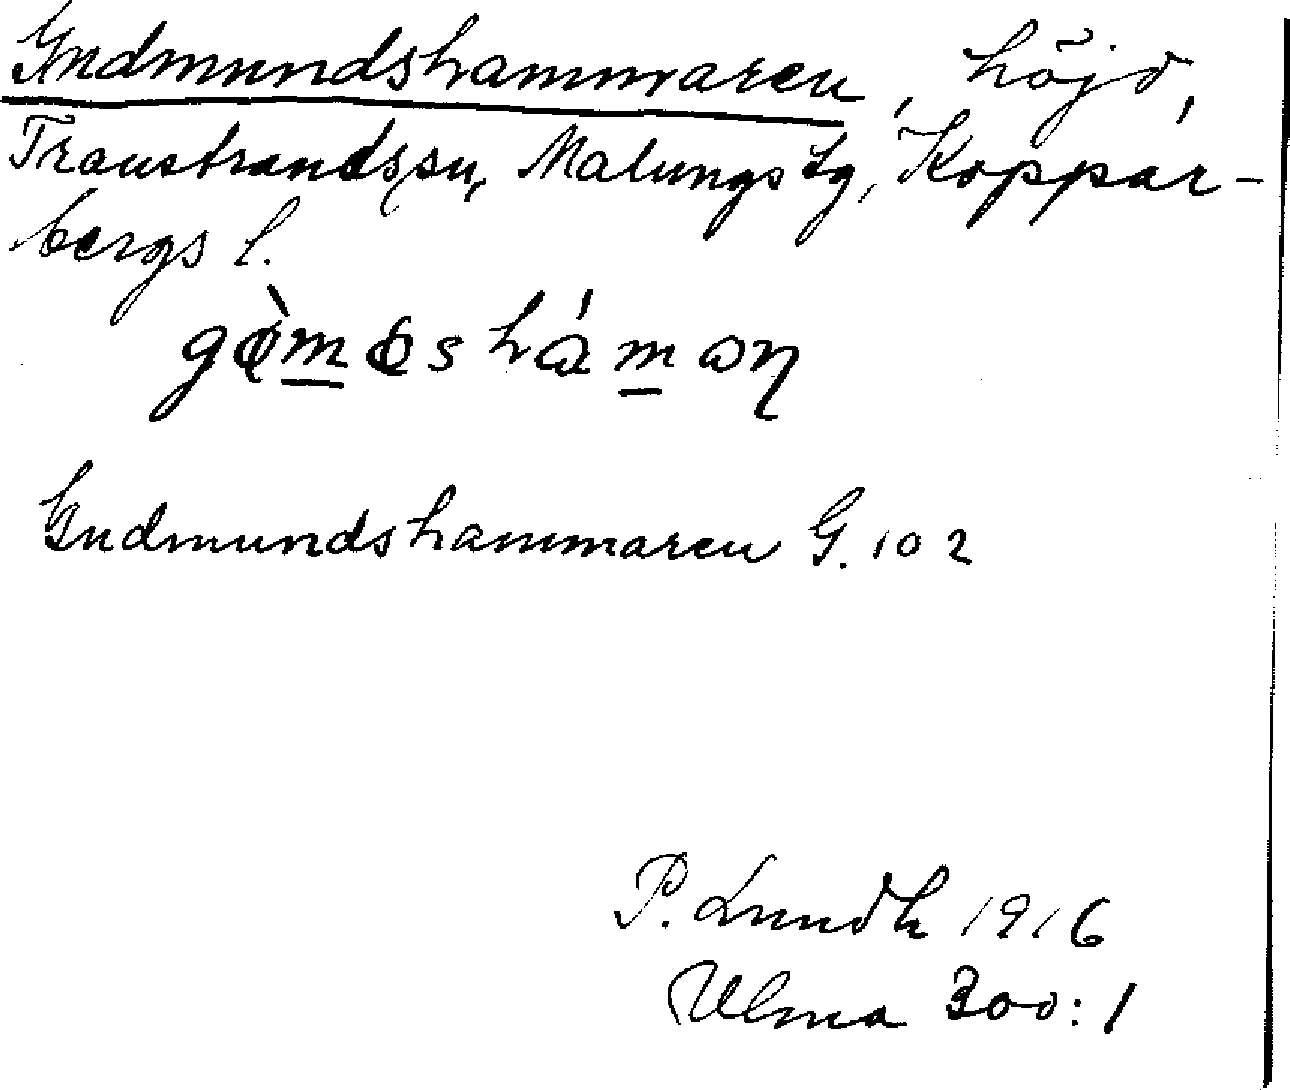 Gudmundshammaren, höjd,
Transtrands sn, Malungs tg, Koppar-
bergs l.
Gudmundshammaren G. 102
P. Lundh 1916
Ulma 300:1